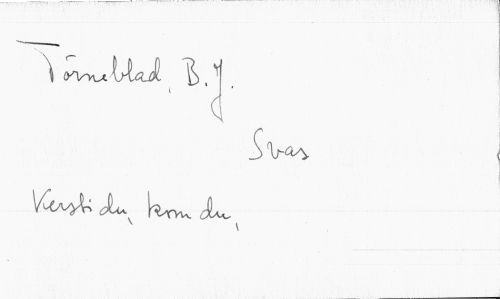 Törneblad, B. J.
Svas
Kersti du, kom du,